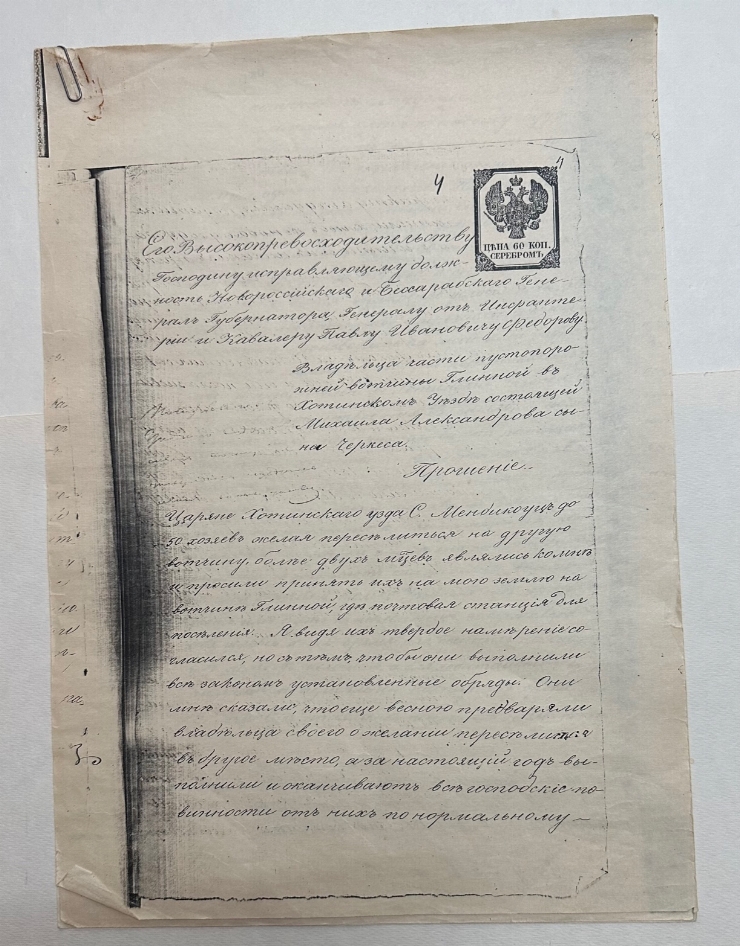 4
4
ЦѢНА 60 КОП.
СЕРЕБРОМЪ
Его Высокопревосходительству
Господину исправляющему долж-
ность Новороссійскаго и Бессарабскаго Гене-
ралъ Губернатора, Генералу отъ Инфанте-
ріи и Кавалеру Павлу Ивановичу Федорову
Владѣльца части пустопоро-
жней вотчины Глинной въ
Хотинскомъ Уѣздѣ состоящей
Михаила Александрова сы-
на Черкеса.
Прошеніе
Царяне Хотинскаго уѣзда С. Мендикоуцъ до
50 хозяевъ желая переселиться на другую
вотчину болѣе двухъ м̃цевъ являлись ко мнѣ
и просили принять ихъ на мою землю на
вотчинѣ Глинной, гдѣ почтовая станція для
поселенія. Я видя ихъ твердое намѣреніе со-
гласился, но съ тѣмъ, чтобы они выполнили
всѣ закономъ установленные обряды. Они
мнѣ сказали, что еще весною предваряли
владѣльца своего о желаніи переселиться
въ другое мѣсто, а за настоящій годъ вы-
полнили и оканчиваютъ всѣ господскіе по-
винности отъ нихъ по нормальному